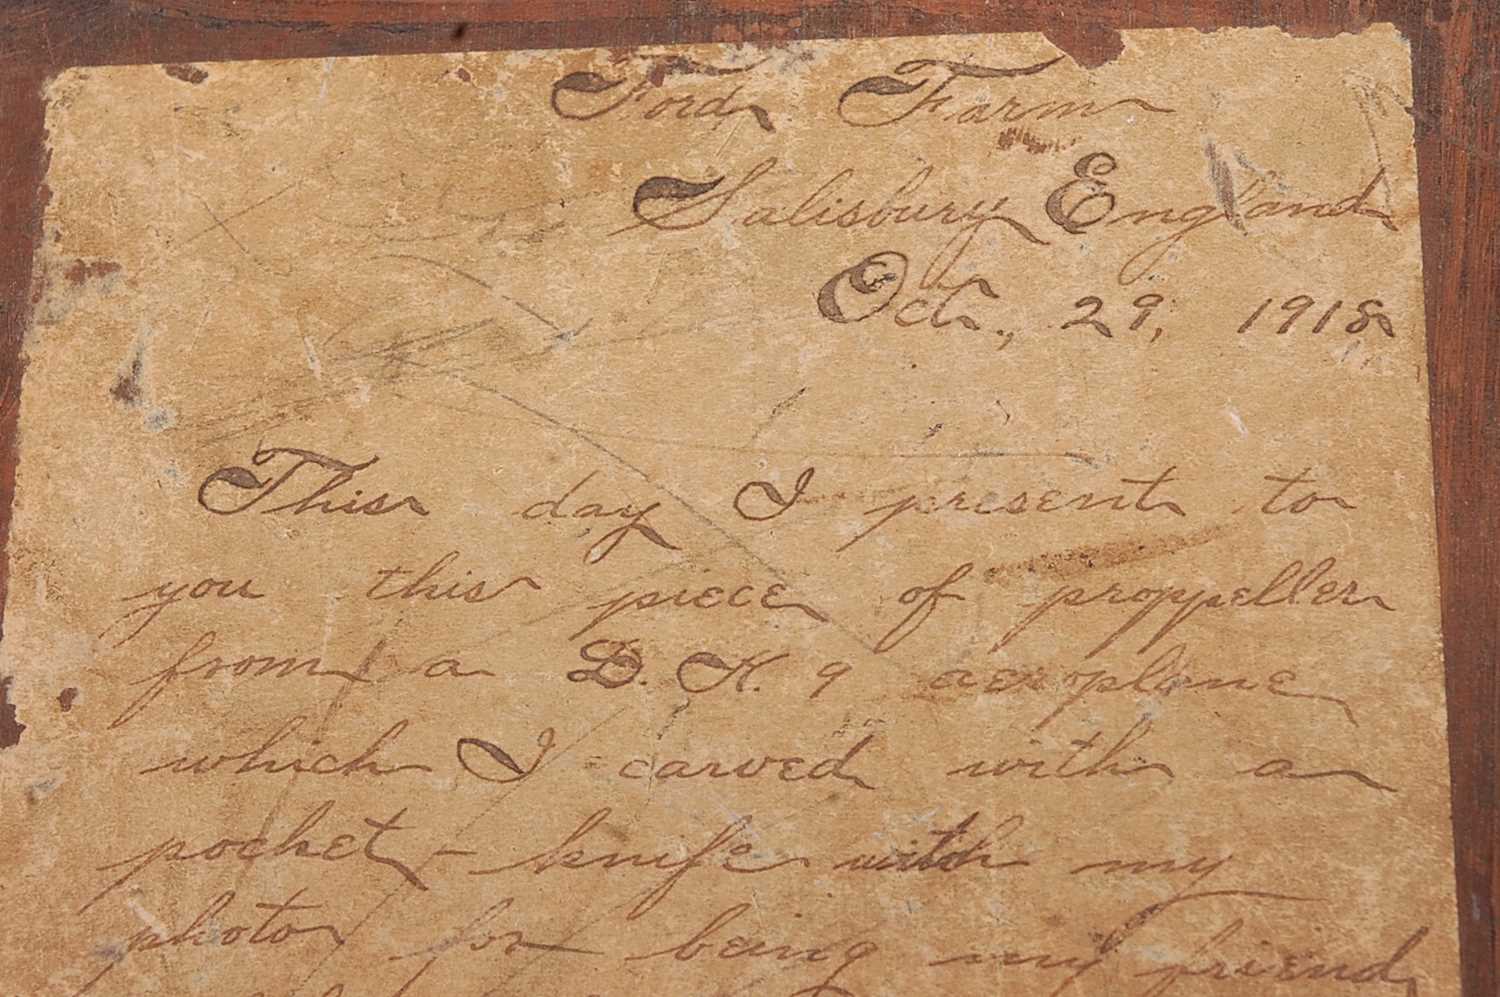 Ford Farm
Salisbury England
Oct., 29, 1918
This day I present to
you this piece of proppeller
from a D. H. 9 aeroplane
which I carved with a
pocket - knife with my
photo for being my friend